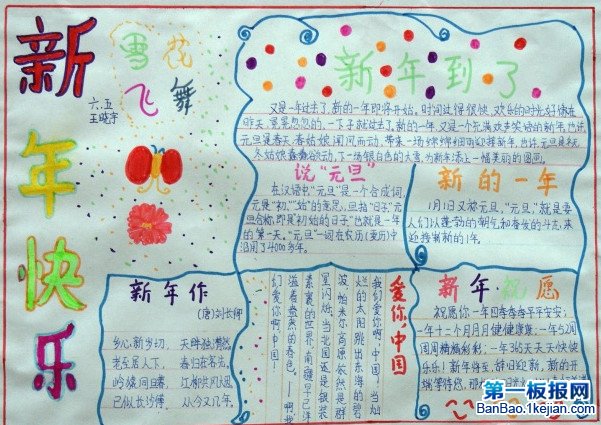 新年快乐
雪花
飞舞
六.五
王晓宇
新年到了
又是一年过去了,新的一年即将开始。时间过得很快,欢乐的时光好像在
昨天,晃晃忽忽的,一下子就过去了。新的一年,又是一个充满欢声笑语的新年。也许
元旦是春天,春姑娘闻风而动,带来一场绵绵细雨迎接新年,也许元旦是冬天,
冬姑娘轰轰烈动,下一场银白色的大雪,为新年添上一幅美丽的图画。
说“元旦”
在汉语中“元旦”是一个合成词,
元是“初”、“始”的意思。旦指“日子”,“元
旦”合称,即是“初始的日子”也就是一年
的第一天。“元旦”一词在农历(夏历)中
沿用了4000多年。
新的一年
1月1日又称元旦,“元旦,”就是要
人们以蓬勃的朝气和奋发的斗志,来
迎接崭新的1年。
新年作
(唐)刘长卿
乡心新岁切, 天畔独潸然。
老至居人下, 春归在客先。
岭猿同旦暮, 江柳共风烟。
已似长沙傅, 从今又几年。
爱你,中国
我们爱你啊,中国!当灿
烂的太阳跳出东海的碧
波,帕米尔高原依然是群
星闪烁;当北国还是银装
素裹的世界,南疆早已洋
溢着盎然的春色。——啊,我
们爱你啊,中国!
新年·祝愿
祝愿你一年四季季季平平安安;
一年十二个月月月健健康康;一年52周
周周精精彩彩;一年365天天天快快
乐乐!新年将至,辞旧迎新,新的开
端等待您,那
第一板报网
BanBao.1kejian.com